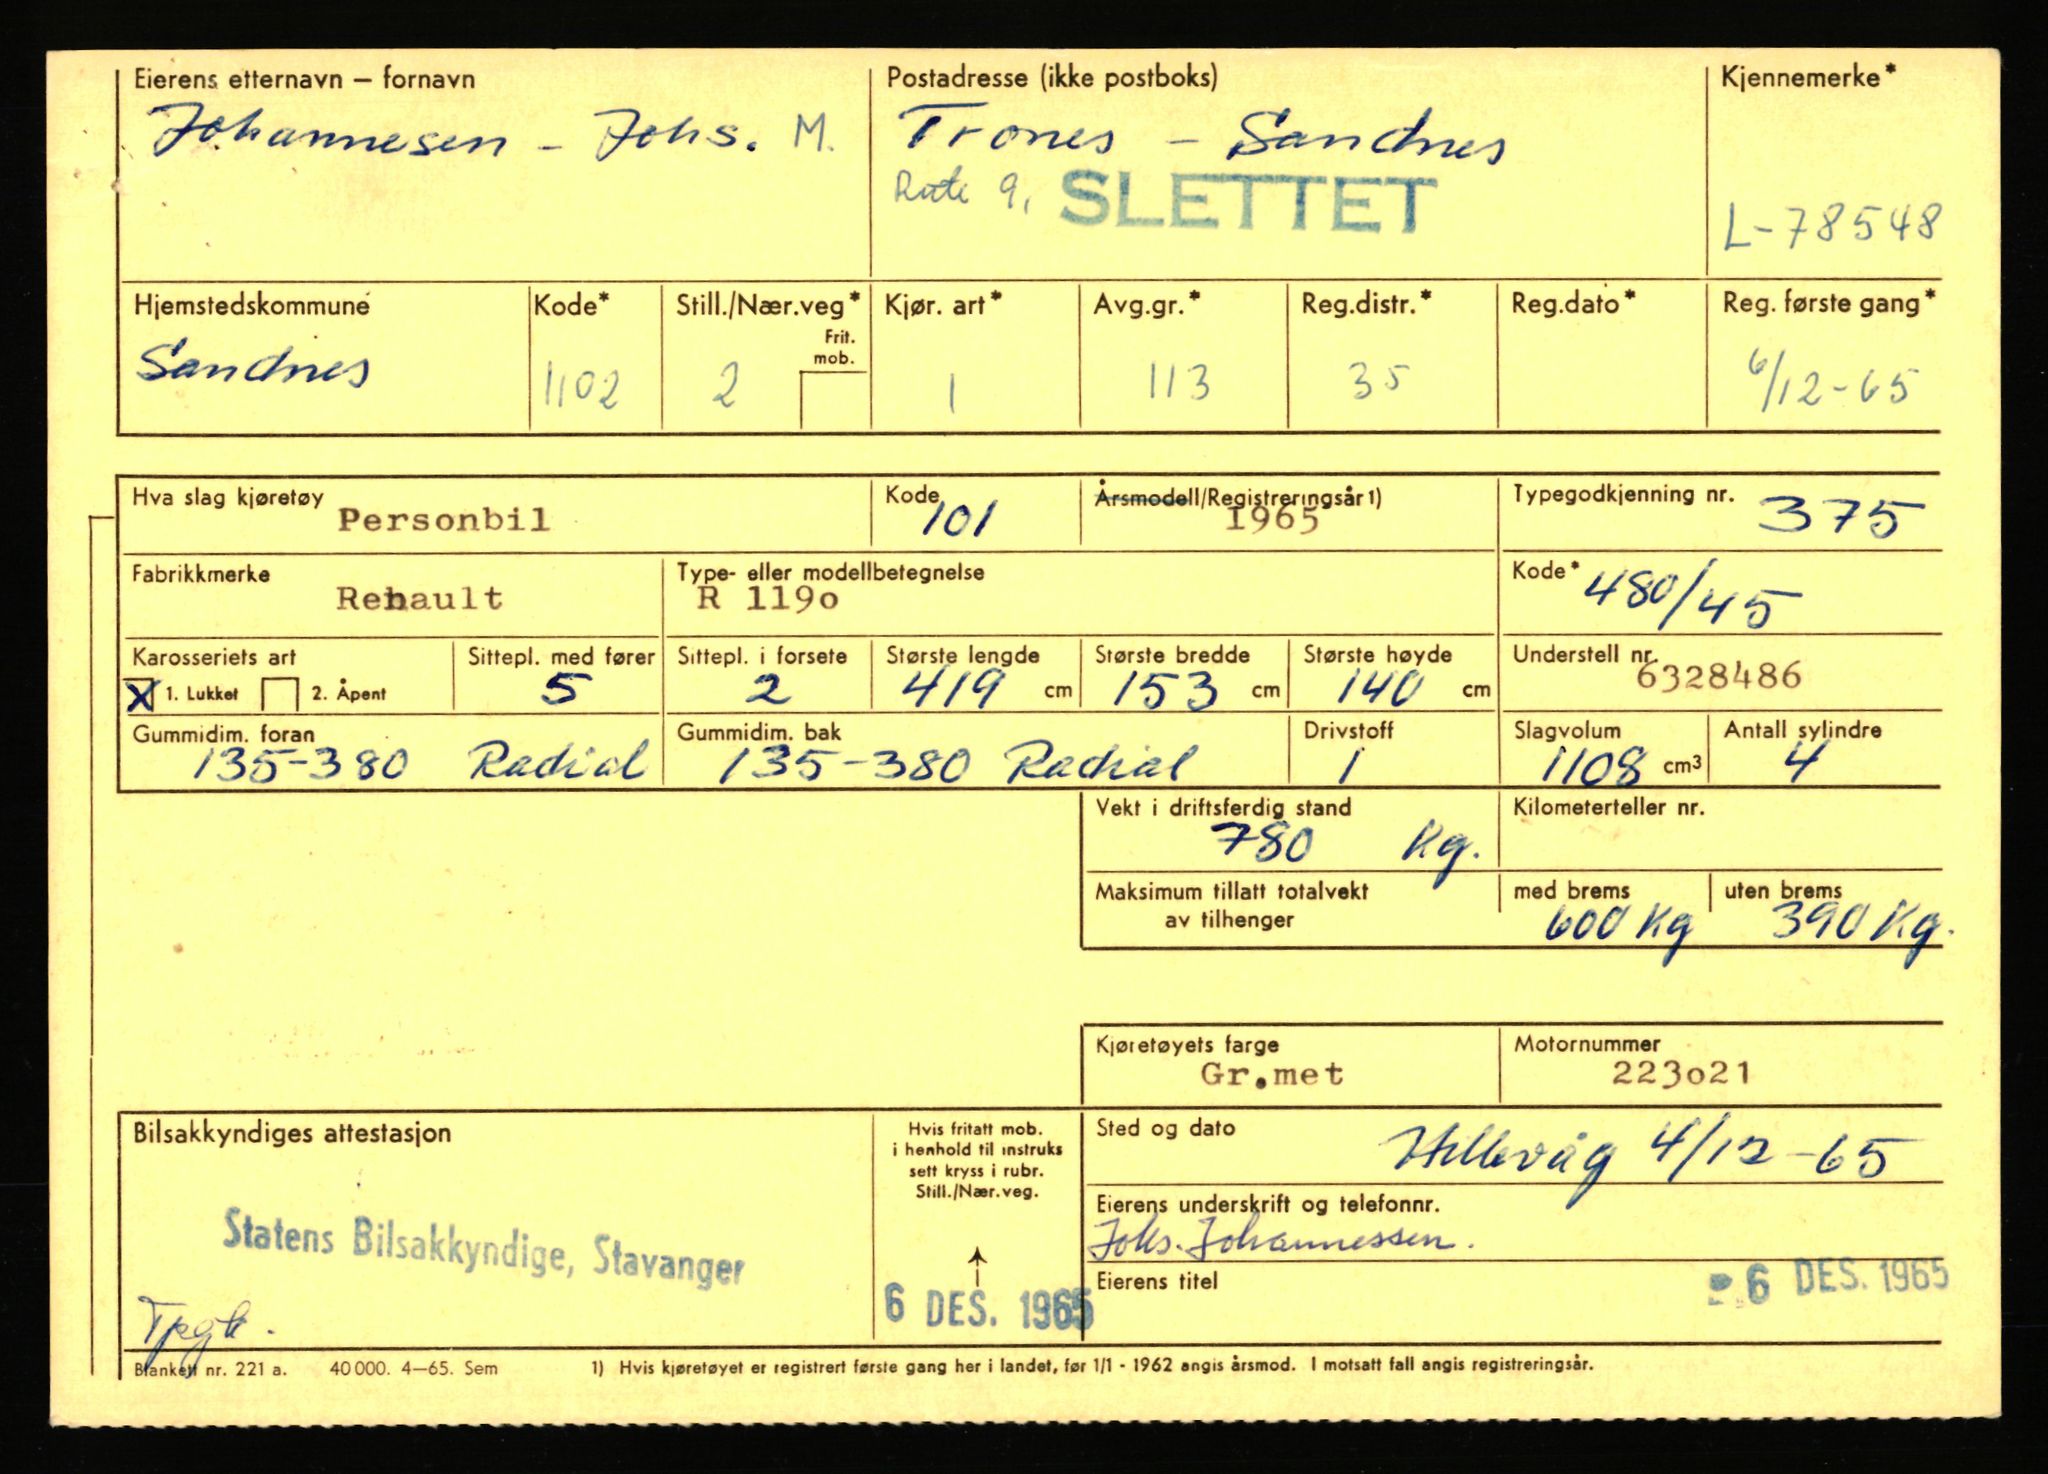 Eierens etternavn – fornavn
Johannesen - Johs. M.
Postadresse (ikke postboks)
Trones - Sandnes
Rute 9,
SLETTET
Kjennemerke*
L-78548
Hjemstedskommune
Sandnes
Kode*
1102
Still./Nær.veg*
Frit.
mob.
2
Kjør. art*
1
Avg.gr.*
113
Reg.distr.*
35
Reg.dato*
Reg. første gang*
6/12-65
Hva slag kjøretøy
Personbil
Kode
101
Årsmodell/Registreringsår 1)
1965
Typegodkjenning nr.
375
Fabrikkmerke
Renault
Type- eller modellbetegnelse
R 119o
Kode*
480/45
Karosseriets art
X 1. Lukket 2. Åpent
Sittepl. med fører
5
Sittepl. i forsete
2
Største lengde
419 cm
Største bredde
153 cm
Største høyde
140 cm
Understell nr.
6328486
Gummidim. foran
135-380 Radial
Gummidim. bak
135-380 Radial
Drivstoff
1
Slagvolum
1108 cm3
Antall sylindre
4
Vekt i driftsferdig stand
780 Kg.
Kilometerteller nr.
Maksimum tillatt totalvekt
av tilhenger
med brems
600 Kg
uten brems
390 Kg.
Kjøretøyets farge
Gr.met
Motornummer
223o21
Bilsakkyndiges attestasjon
Statens Bilsakkyndige, Stavanger
Tpgk.
Hvis fritatt mob.
i henhold til instruks
sett kryss i rubr.
Still./Nær.veg.
6 DES. 1965
Sted og dato
Hillevåg 4/12-65
Eierens underskrift og telefonnr.
Johs. Johannessen.
Eierens titel
6 DES. 1965
Blankett nr. 221 a. 40 000. 4–65. Sem
1) Hvis kjøretøyet er registrert første gang her i landet, før 1/1 - 1962 angis årsmod. I motsatt fall angis registreringsår.